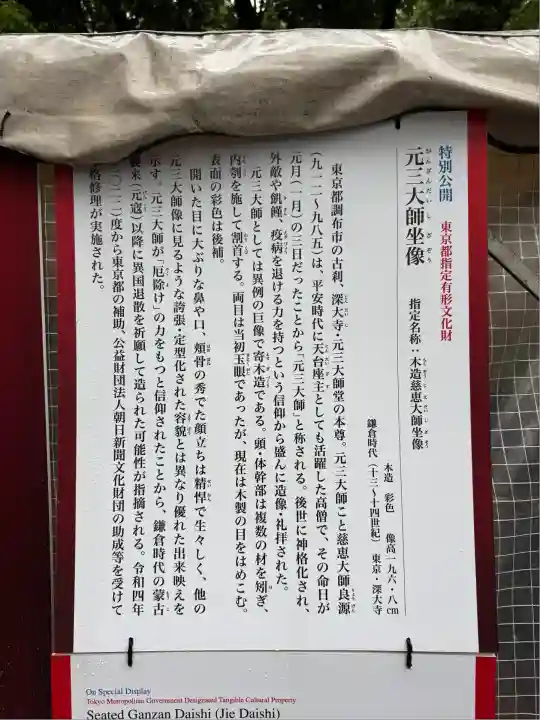 特別公開　東京都指定有形文化財
元三大師坐像
がんざんだいしざぞう
指定名称：木造慈恵大師坐像
もくぞうじえだいしざぞう
木造　彩色　像高一九六・八cm
鎌倉時代（十三～十四世紀）　東京・深大寺
東京都調布市の古刹、深大寺・元三大師堂の本尊。元三大師こと慈恵大師良源
（九一二～九八五）は、平安時代に天台座主としても活躍した高僧で、その命日が
元月（一月）の三日だったことから「元三大師」と称される。後世に神格化され、
外敵や飢饉、疫病を退ける力を持つという信仰から盛んに造像・礼拝された。
元三大師としては異例の巨像で寄木造である。頭・体幹部は複数の材を矧ぎ、
内刳を施して割首する。両目は当初玉眼であったが、現在は木製の目をはめこむ。
表面の彩色は後補。
開いた目に大ぶりな鼻や口、頬骨の秀でた顔立ちは精悍で生々しく、他の
元三大師像に見るような誇張・定型化された容貌とは異なり優れた出来映えを
示す。元三大師が「厄除け」の力をもつと信仰されたことから、鎌倉時代の蒙古
襲来（元寇）以降に異国退散を祈願して造られた可能性が指摘される。令和四年
二）度から東京都の補助、公益財団法人朝日新聞文化財団の助成等を受けて
格修理が実施された。
On Special Display
Tokyo Metropolitan Government Designated Tangible Cultural Property
Seated Ganzan Daishi (Jie Daishi)